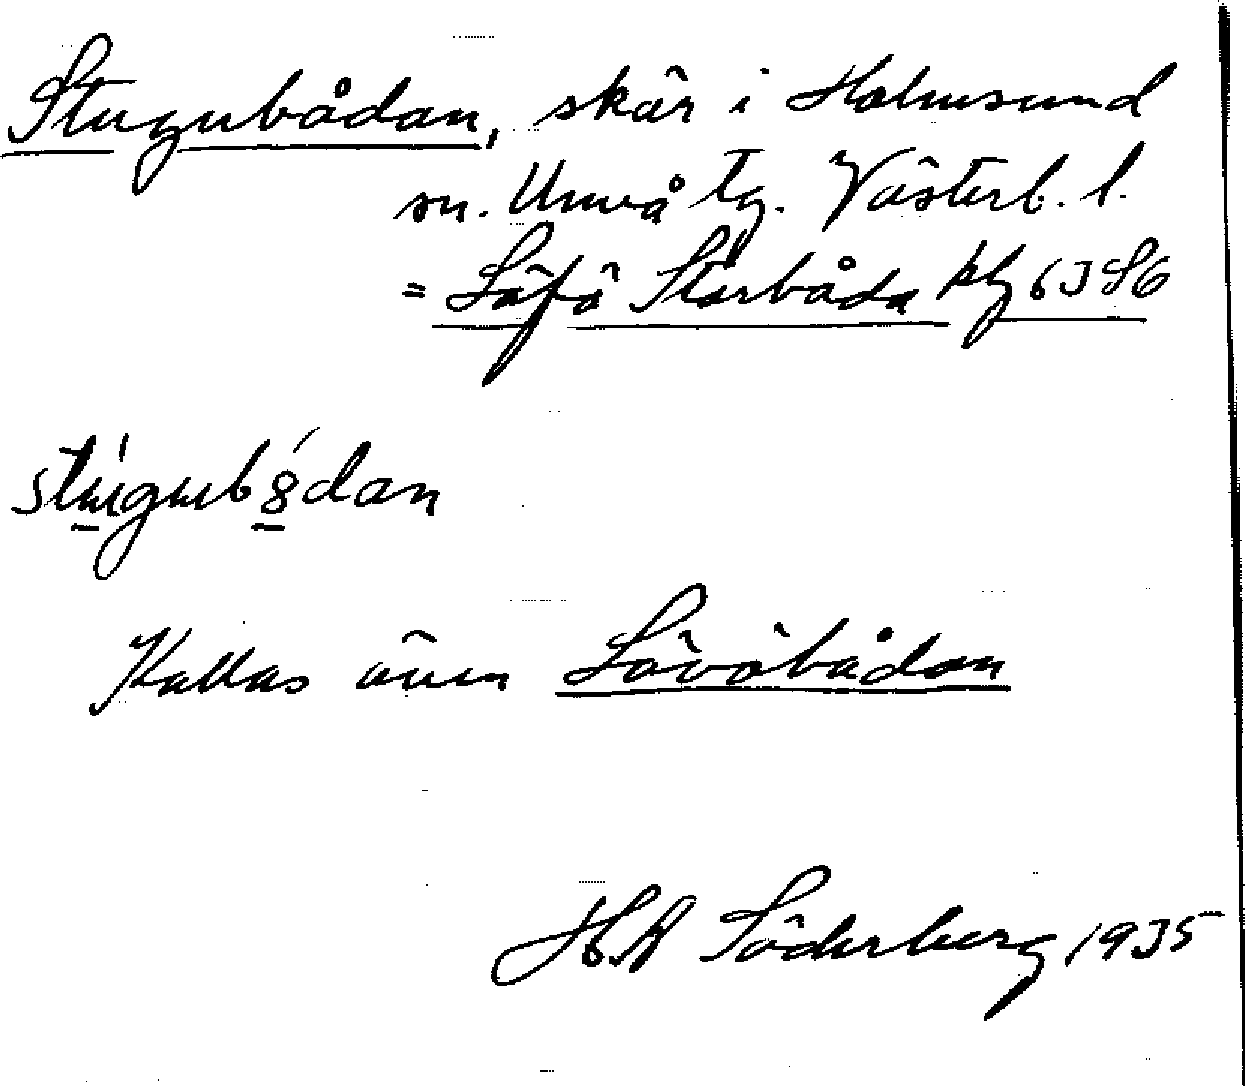 Stugubådan, skär i Holmsund
sn. Umeå tg. Västerb. l.
= Löfö Storbåda kbl 63 S6
stúgub8́dan
Kallas även Lövöbådan
H Söderberg 1935